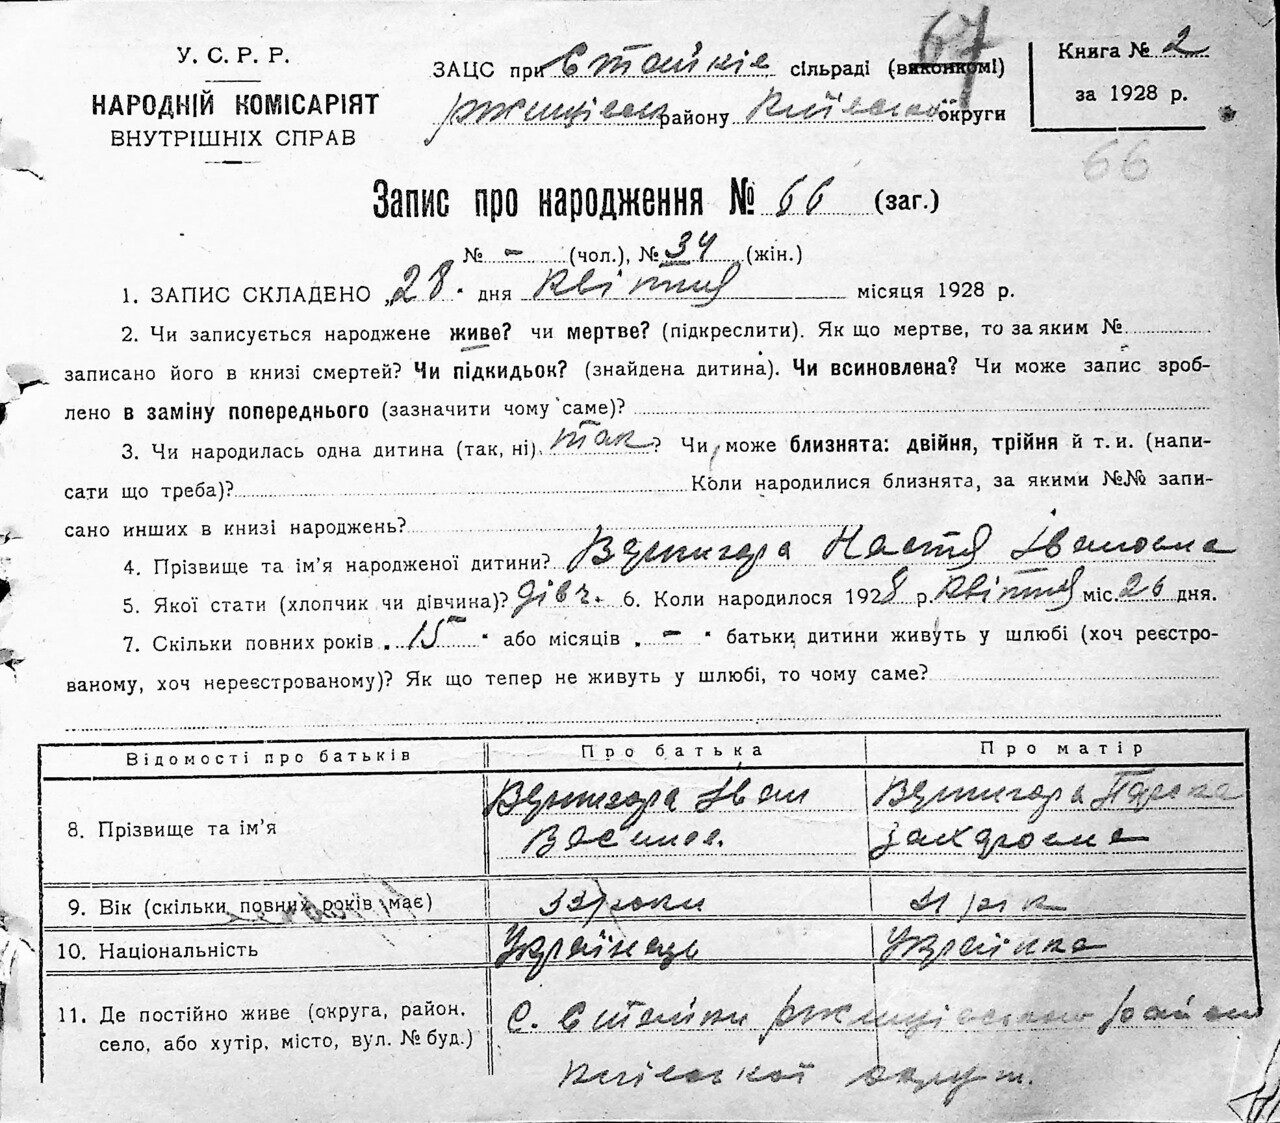 У. С. Р. Р.
НАРОДНІЙ КОМІСАРІЯТ
ВНУТРІШНІХ СПРАВ
67
ЗАЦС при Стайків сільраді (виконкомі)
Ржищівськ району Київської округи
Книга № 2
за 1928 р.
66
Запис про народження № 66 (заг.)
№ - (чол.), № 34 (жін.)
1. ЗАПИС СКЛАДЕНО „28" дня квітня місяця 1928 р.
2. Чи записується народжене живе? чи мертве? (підкреслити). Як що мертве, то за яким №
записано його в книзі смертей? Чи підкидьок? (знайдена дитина). Чи всиновлена? Чи може запис зроб-
лено в заміну попереднього (зазначити чому саме)?
3. Чи народилась одна дитина (так, ні). так? Чи може близнята: двійня, трійня й т. и. (напи-
сати що треба)? Коли народилися близнята, за якими №№ запи-
сано инших в книзі народжень?
4. Прізвище та ім'я народженої дитини? Вернигора Настя Івановна
5. Якої стати (хлопчик чи дівчина)? дівч. 6. Коли народилося 1928 р. квітня міс. 26 дня.
7. Скільки повних років „15" або місяців „-" батьки дитини живуть у шлюбі (хоч реєстро-
ваному, хоч нереєстрованому)? Як що тепер не живуть у шлюбі, то чому саме?
Відомості про батьків Про батька Про матір
8. Прізвище та ім'я Вернигора Іван Васильов. Вернигора Параска Захаровна
9. Вік (скільки повних років має) роки рік
10. Національність Українець Українка
11. Де постійно живе (округа, район, село, або хутір, місто, вул. № буд.) С. Стайки Ржищівського район
Київської округи.